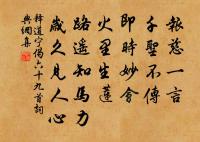 報慈一言
千聖不傳
即時妙會
火星生蓮
路遥知馬力
歲久見人心
释道宁偈六十九首詞
典網集